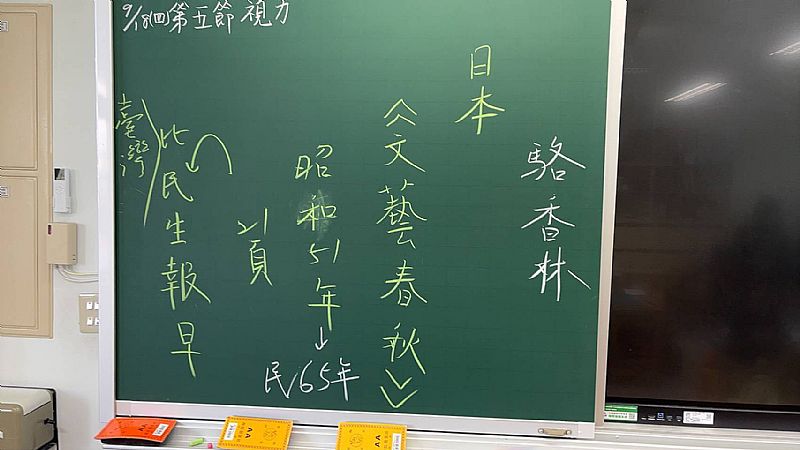 9/18(四)第五節 視力
駱香林
日本
《文藝春秋》
昭和51年
↓
民65年
21頁
比民生報早
臺灣